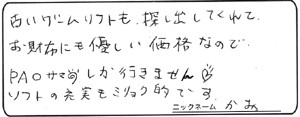 古いゲームソフトも、探し出してくれて、
お財布にも優しい価格なので
PAOサマしか行きません♡
ソフトの充実もミリョク的です。
ニックネーム かまぁ